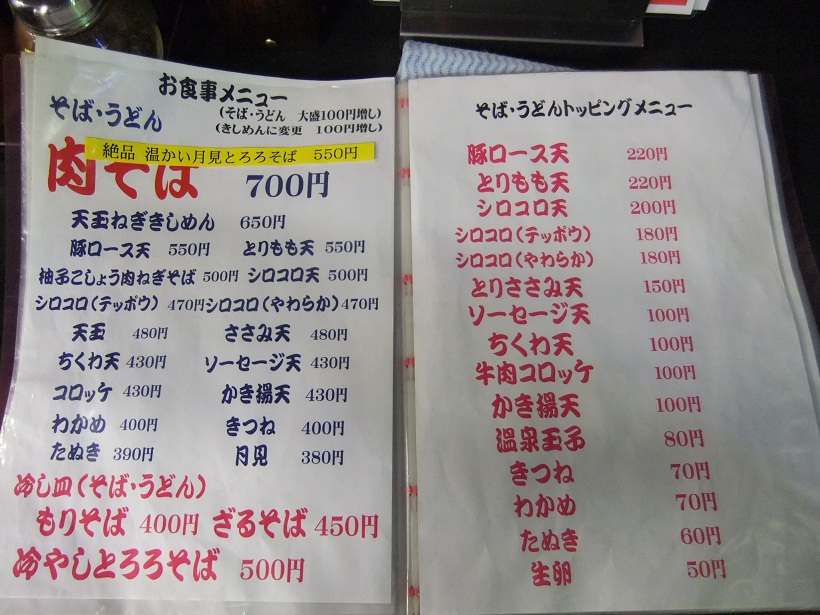 お食事メニュー
そば・うどん
(そば・うどん 大盛100円増し)
(きしめんに変更 100円増し)
絶品 温かい月見とろろそば 550円
肉そば 700円
天玉ねぎきしめん 650円
豚ロース天 550円 とりもも天 550円
柚子こしょう肉ねぎそば 500円 シロコロ天 500円
シロコロ(テッポウ) 470円 シロコロ(やわらか) 470円
天玉 480円 ささみ天 480円
ちくわ天 430円 ソーセージ天 430円
コロッケ 430円 かき揚天 430円
わかめ 400円 きつね 400円
たぬき 390円 月見 380円
冷し皿(そば・うどん)
もりそば 400円 ざるそば 450円
冷やしとろろそば 500円
そば・うどんトッピングメニュー
豚ロース天 220円
とりもも天 220円
シロコロ天 200円
シロコロ(テッポウ) 180円
シロコロ(やわらか) 180円
とりささみ天 150円
ソーセージ天 100円
ちくわ天 100円
牛肉コロッケ 100円
かき揚天 100円
温泉玉子 80円
きつね 70円
わかめ 70円
たぬき 60円
生卵 50円